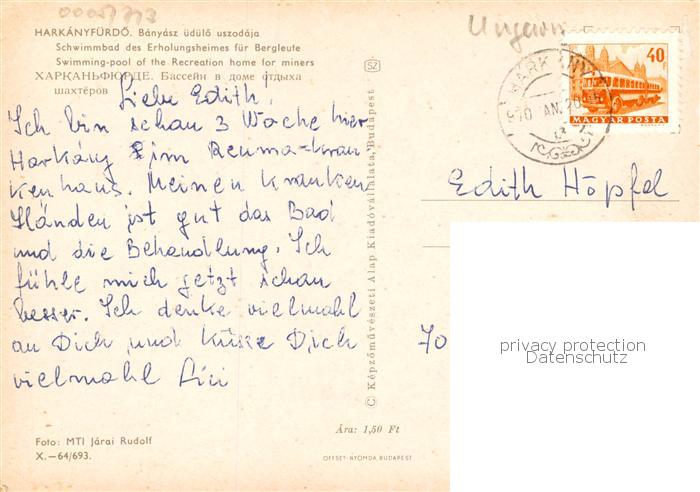 00005713
Ungarn
HARKÁNYFÜRDŐ. Bányász üdülő uszodája
Schwimmbad des Erholungsheimes für Bergleute
Swimming-pool of the Recreation home for miners
ХАРКАНЬФЮРДЕ. Бассейн в доме отдыха
шахтёров
Liebe Edith!
Ich bin schau 3 Woche hier
Harkány im Reuma-kran
kenhaus. Meinen kranken
Händen ist gut das Bad
und die Behandlung. Ich
fühle mich jetzt schau
besser. Ich denke vielmahl
an Dich und Küsse Dich
vielmahl Lili
Foto: MTI Járai Rudolf
X.—64/693.
SZ
© Képzőművészeti Alap Kiadóvállalata, Budapest
Ára: 1,50 Ft
OFFSET-NYOMDA, BUDAPEST
40
MAGYAR POSTA
HARKÁNY
970 JAN. 20
Edith Höpfel
70
privacy protection
Datenschutz